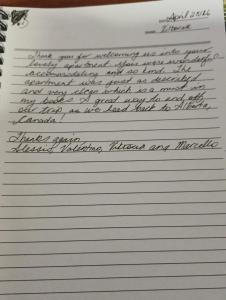 April 2026
Thank you for welcoming us into your
lovely apartment. You were wonderful,
accommodating and so kind. The
apartment was just as described
and very clean which is a must in
my books. A great way to end off
our trip, as we head back to Alberta,
Canada!
Thanks again
Alessio, Valentino, and Marcello